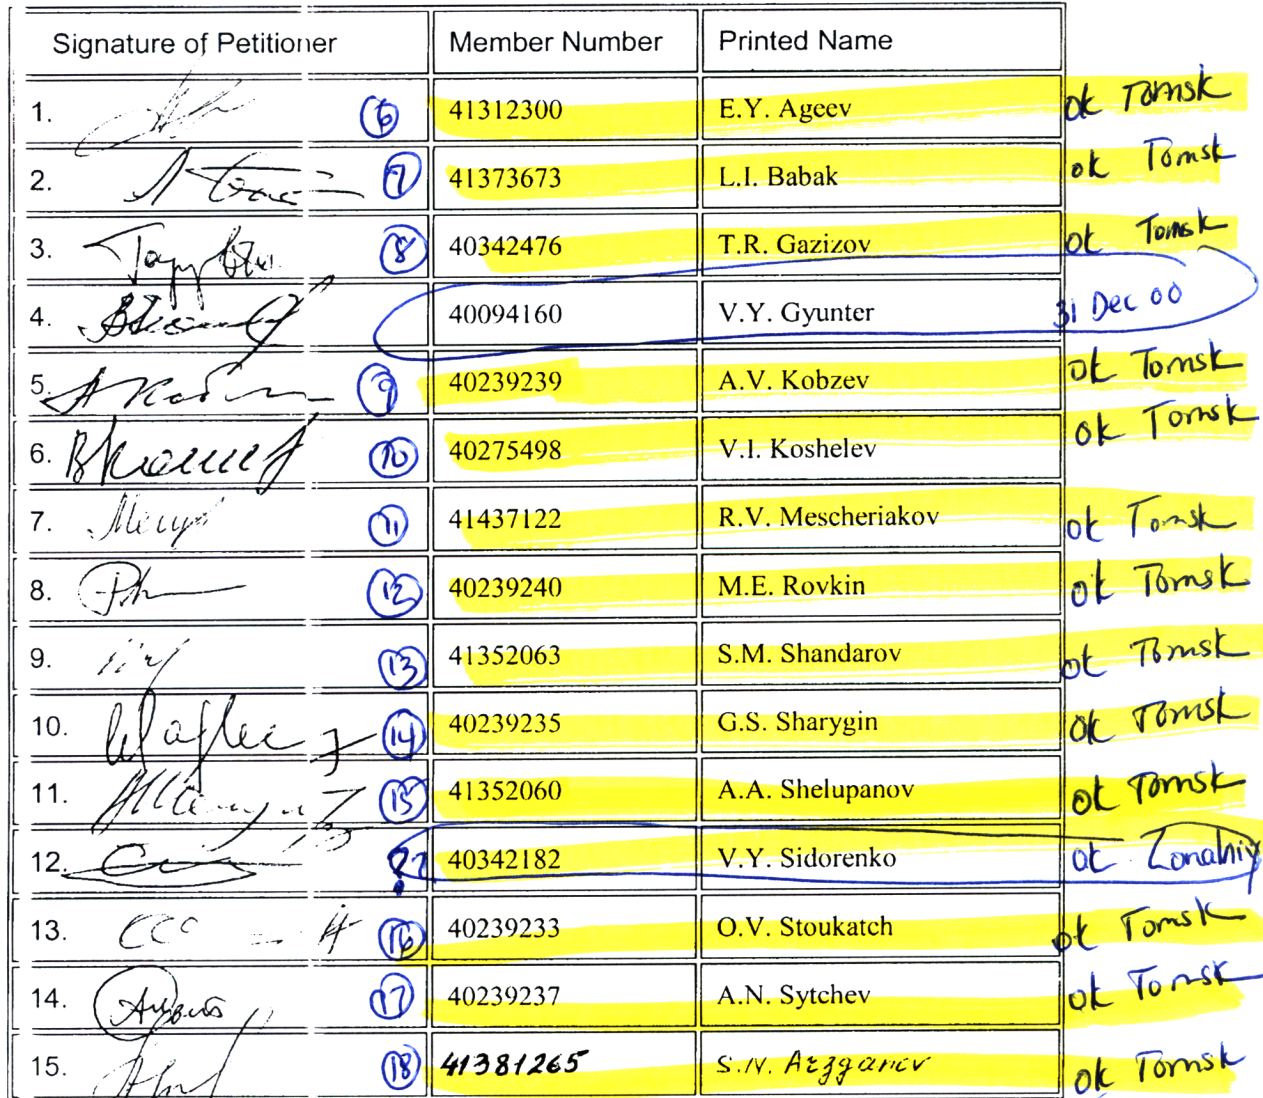 Signature of Petitioner Member Number Printed Name
1. 6 41312300 E.Y. Ageev ok Tomsk
2. 7 41373673 L.I. Babak ok Tomsk
3. 8 40342476 T.R. Gazizov ok Tomsk
4. 40094160 V.Y. Gyunter 31 Dec 00
5. 9 40239239 A.V. Kobzev ok Tomsk
6. 10 40275498 V.I. Koshelev ok Tomsk
7. 11 41437122 R.V. Mescheriakov ok Tomsk
8. 12 40239240 M.E. Rovkin ok Tomsk
9. 13 41352063 S.M. Shandarov ok Tomsk
10. 14 40239235 G.S. Sharygin ok Tomsk
11. 15 41352060 A.A. Shelupanov ok Tomsk
12. ?? 40342182 V.Y. Sidorenko ok Zonalniy
13. 16 40239233 O.V. Stoukatch ok Tomsk
14. 17 40239237 A.N. Sytchev ok Tomsk
15. 18 41381265 S.N. ok Tomsk